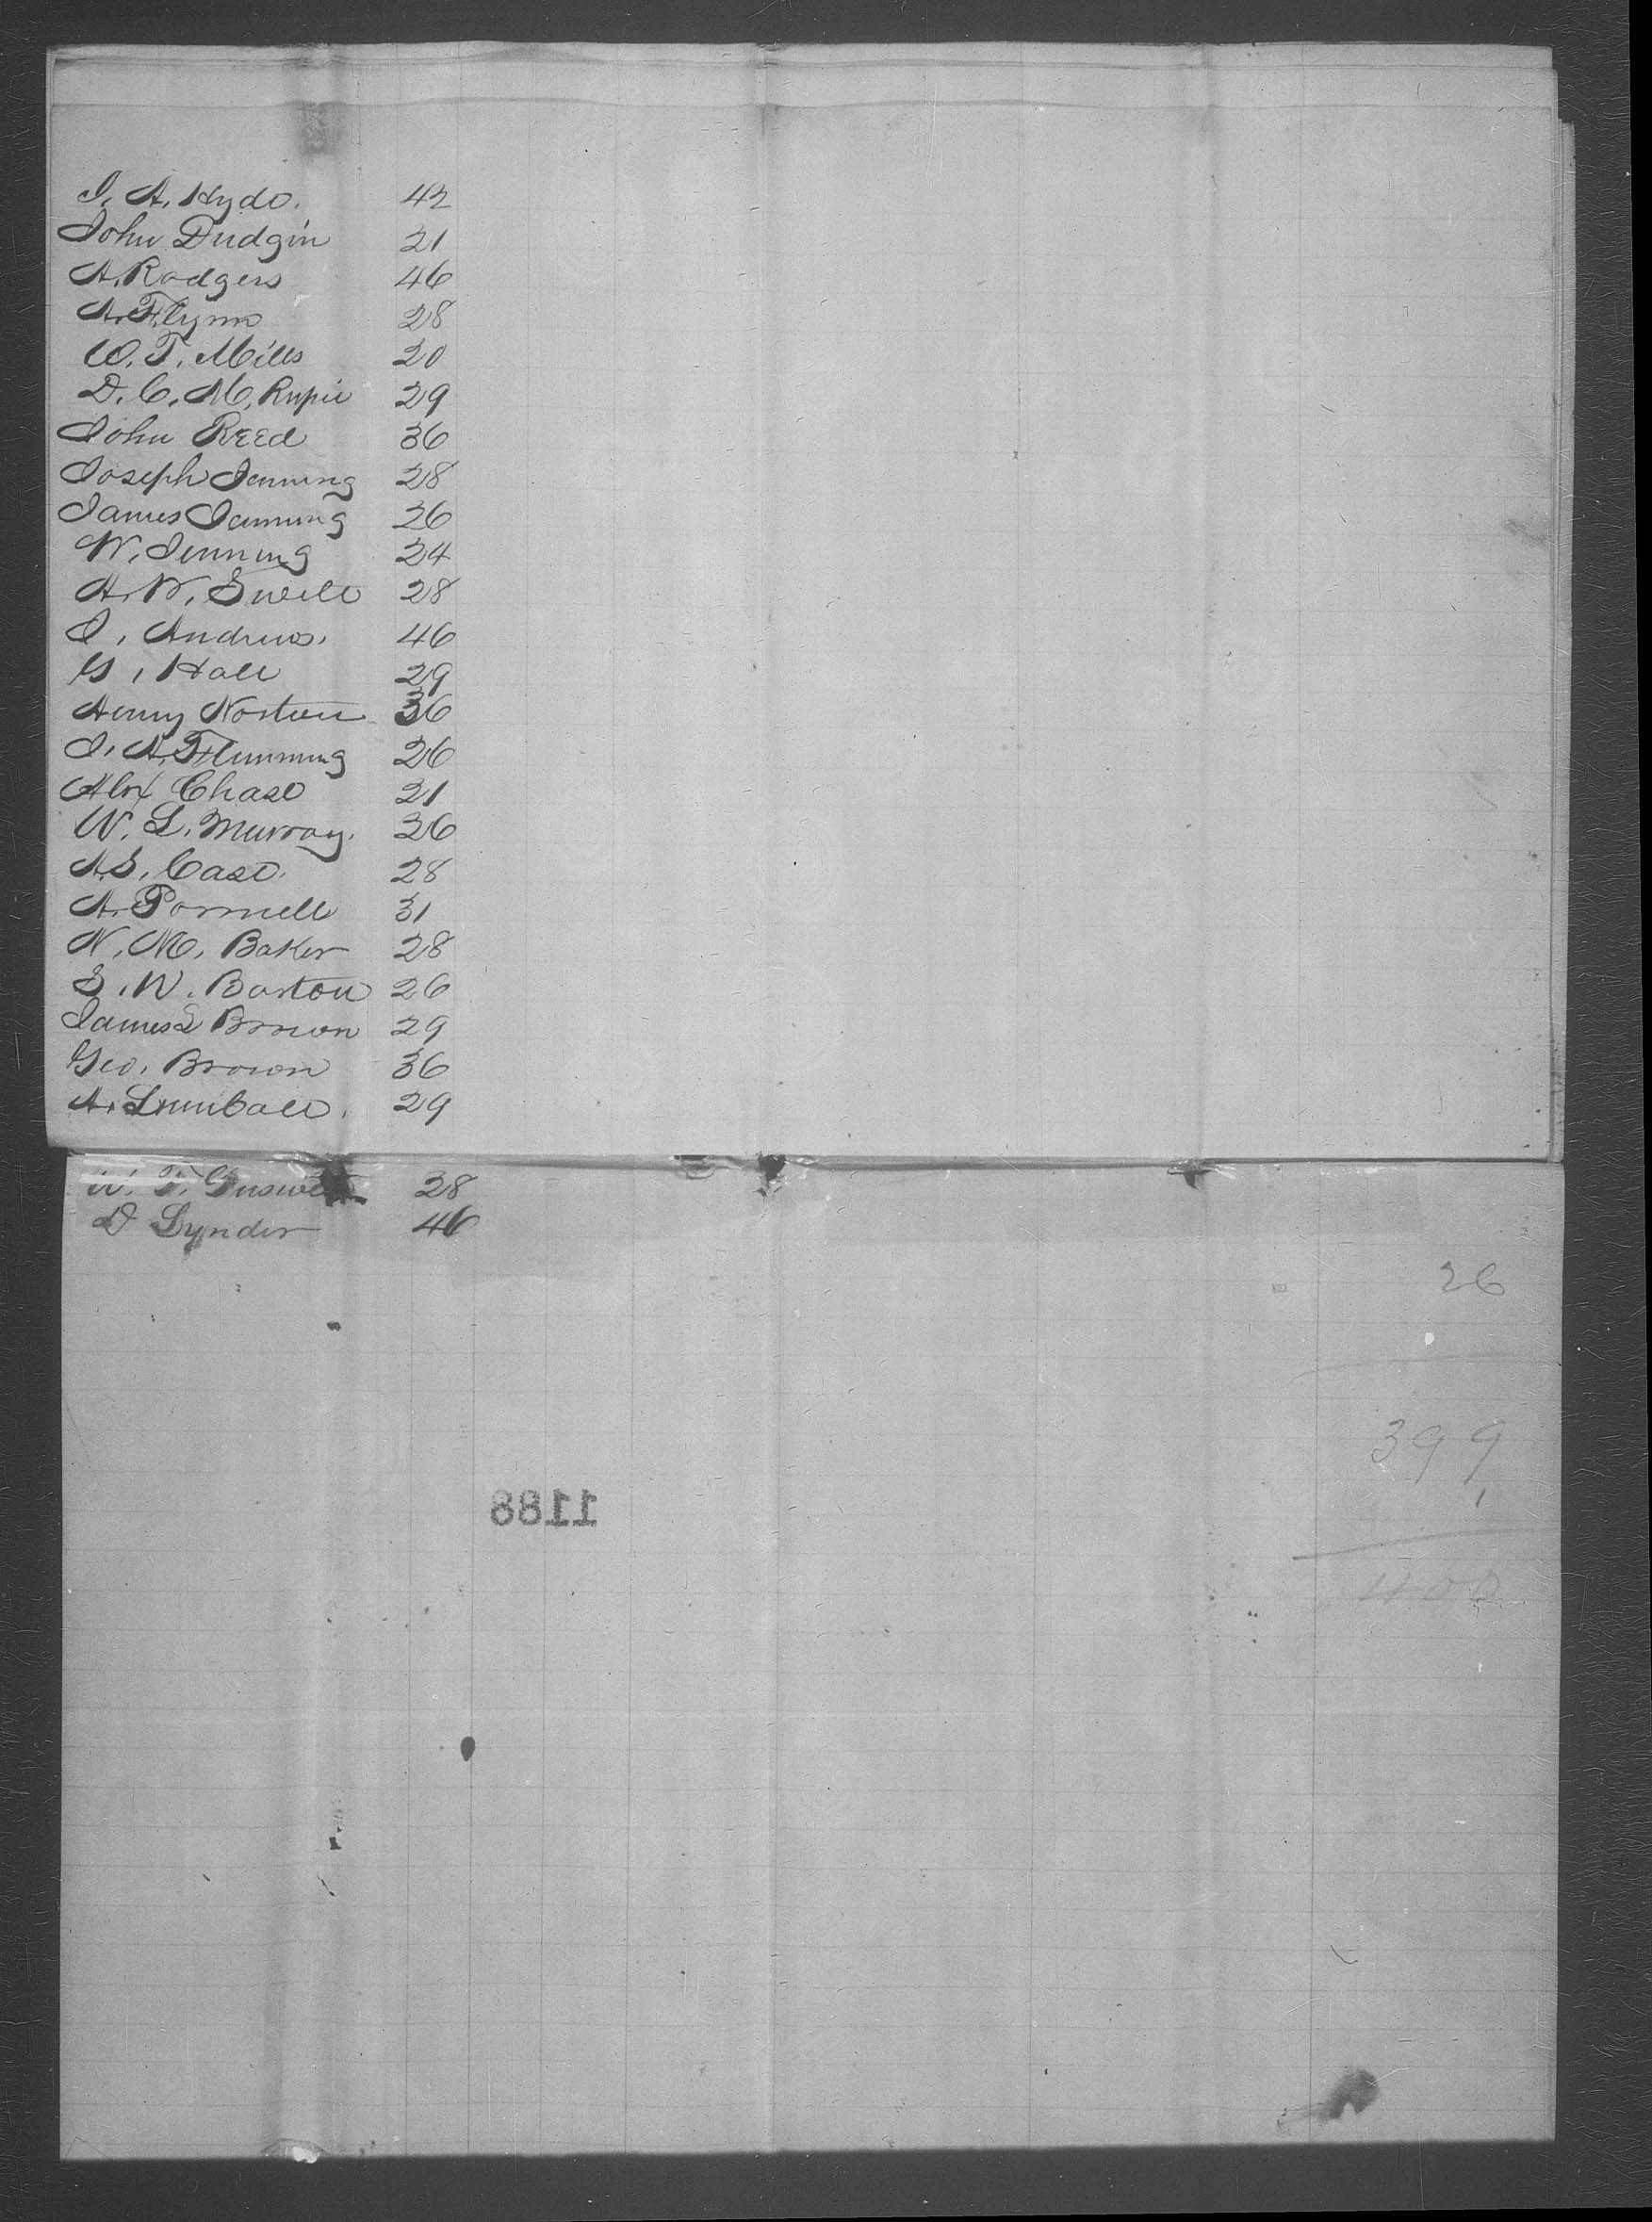 J. A. Hyde. 42
John Dudgin 21
A. Rodgers 46
A. Flynn 28
W. T. Mills 20
D. C. M. Rupie 29
John Reed 36
Joseph Jenning 28
James Jenning 26
W. Jenning 24
A. W. Swell 28
J. Andrews. 46
G. Hall 29
Henry Norton 36
J. A. Flemming 26
Alex Chase 21
W. L. Murray. 26
A. S. Case. 28
A. Pornell 31
N. M. Baker 28
S. W. Barton 26
James L Brown 29
Geo. Brown 36
A. Limball. 29
W. T. 28
D Lynder 46
26
399
1
400
1188